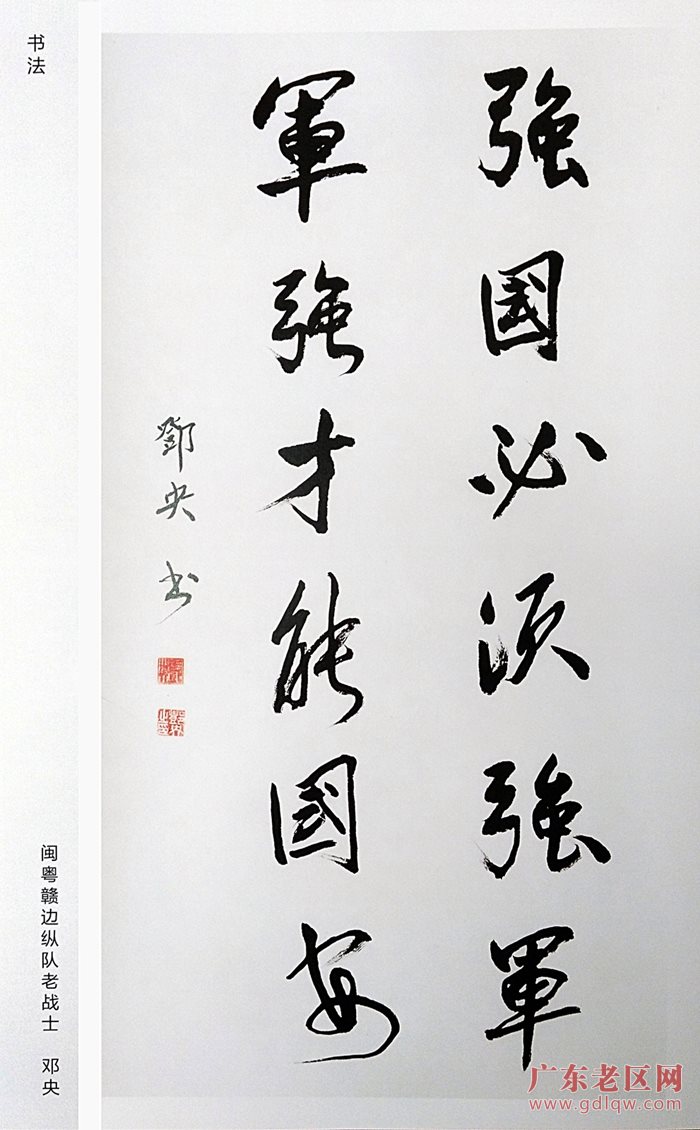 书法
強國必須強軍
軍強才能國安
鄧央 书
闽粤赣边纵队老战士 邓央
广东老区网
www.gdlqw.com